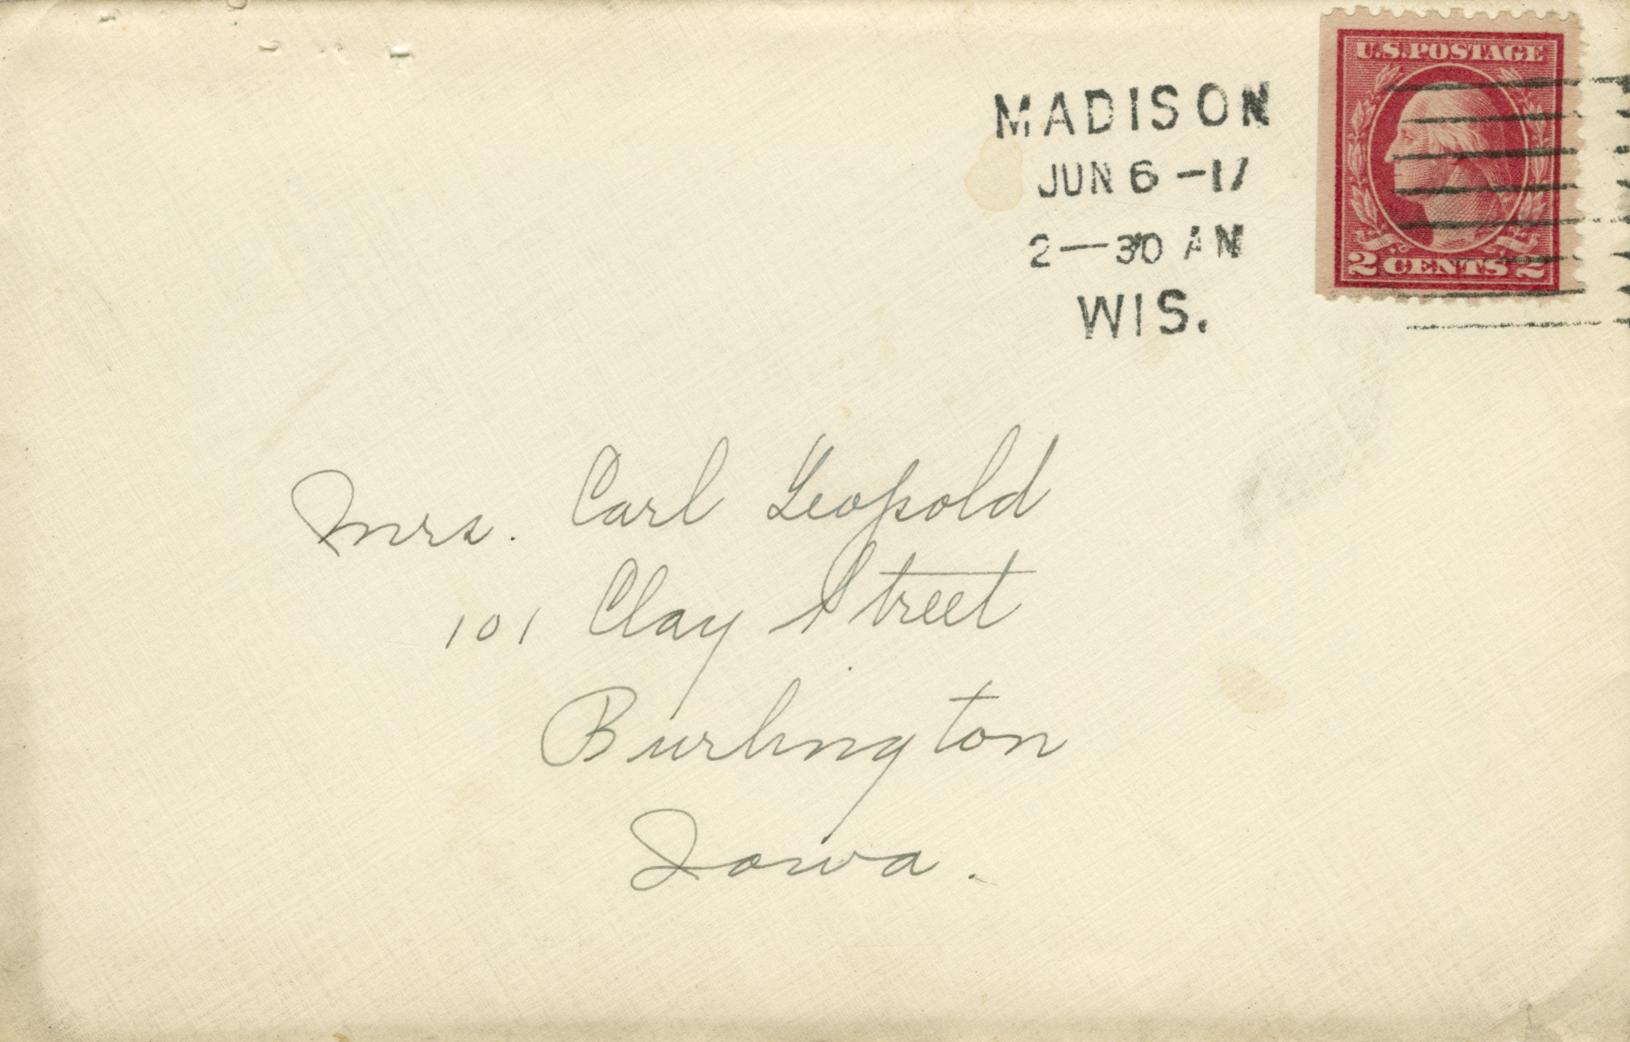 U.S. POSTAGE
2 CENTS 2
MADISON
JUN 6 -17
2-30 AM
WIS.
Mrs. Carl Leopold
101 Clay Street
Burlington
Iowa.